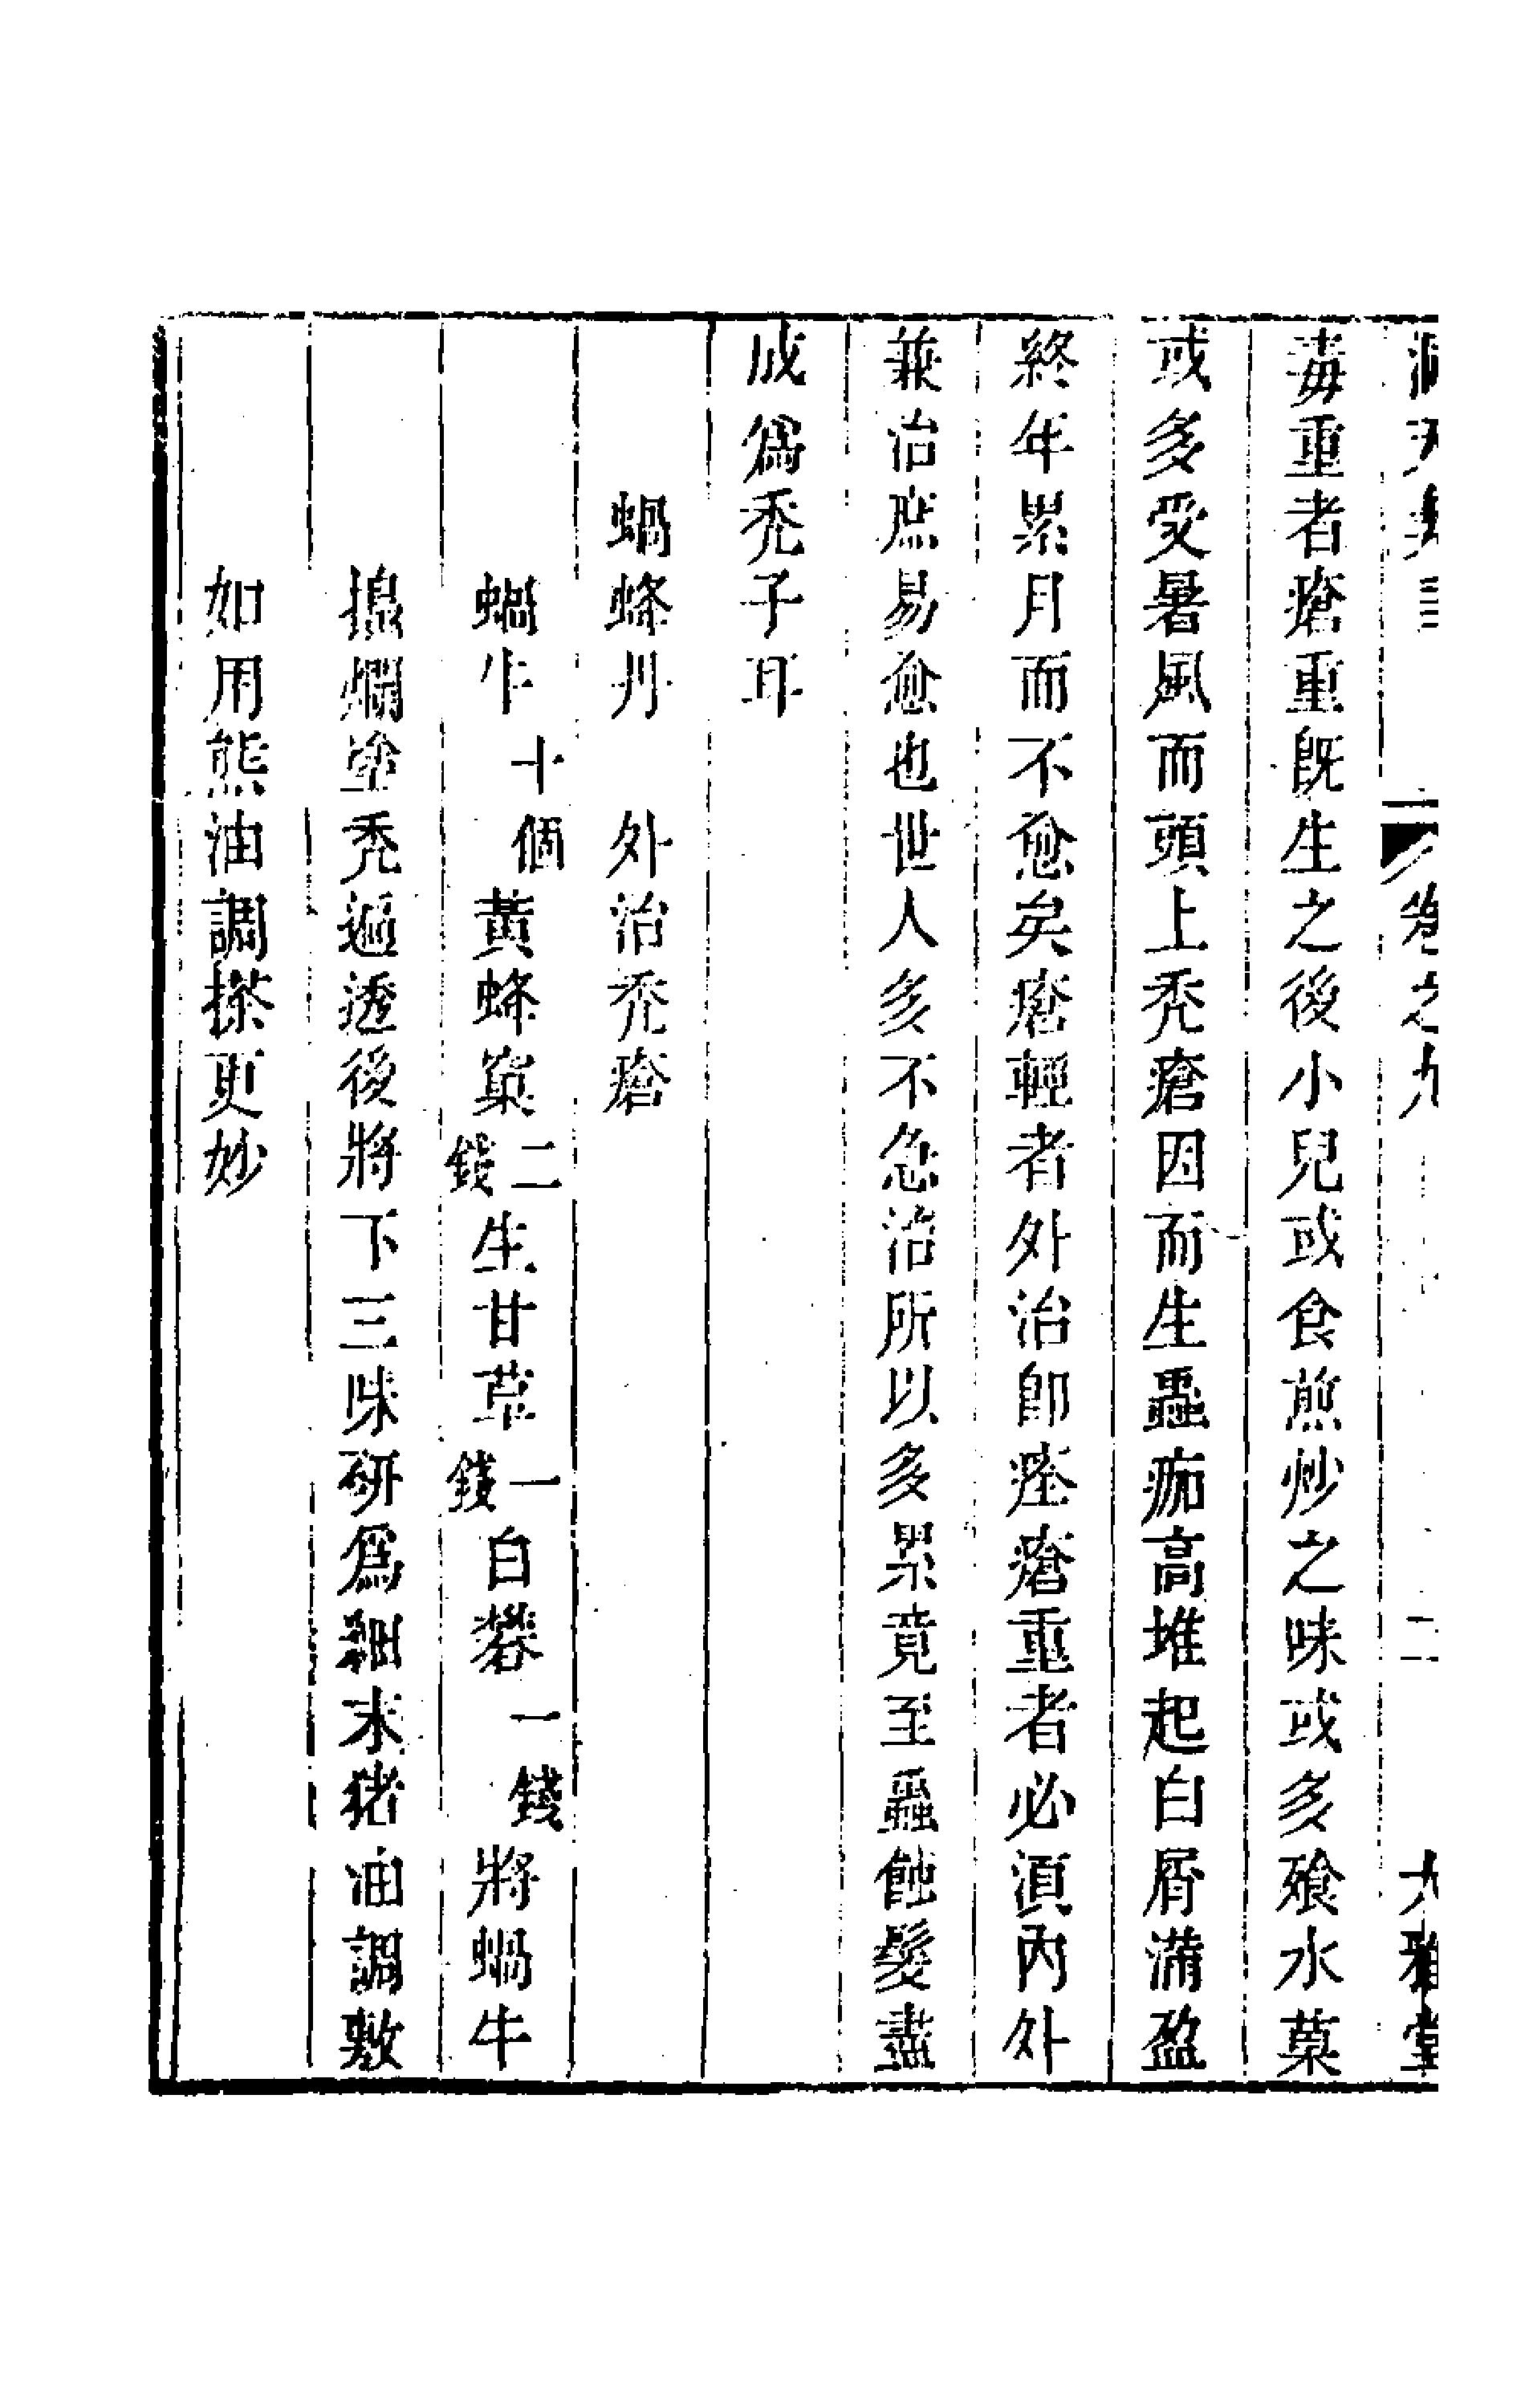 洞天奧旨 卷之九 二 大雅堂
毒重者瘡重旣生之後小兒或食煎炒之味或多飧水菓
或多受暑風而頭上禿瘡因而生蟲痂高堆起白屑滿盈
終年累月而不愈矣瘡輕者外治卽痊瘡重者必湏內外
兼治庶易愈也世人多不急治所以多累竟至蟲蝕髮盡
成爲禿子耳
蝸蜂丹 外治禿瘡
蝸牛十個黃蜂窠二錢生甘草一錢白礬一錢將蝸牛
搗爛塗禿遍透後將下三味研爲細末猪油調敷
如用熊油調搽更妙